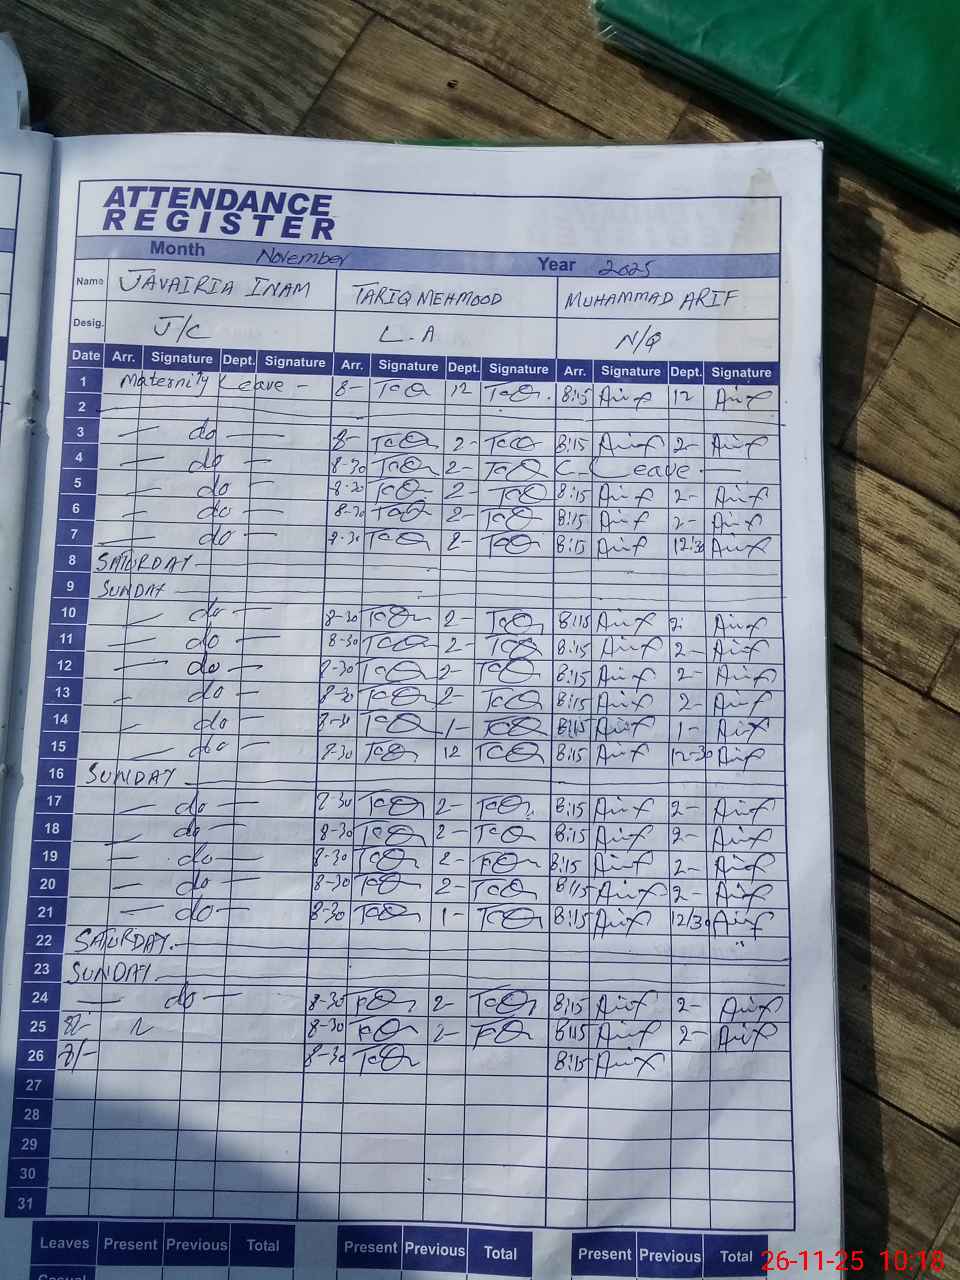 ATTENDANCE
REGISTER
Month November Year 2025
Name JAVAIRIA INAM TARIQ MEHMOOD MUHAMMAD ARIF
Desig. J/C L.A N/Q
Date Arr. Signature Dept. Signature Arr. Signature Dept. Signature Arr. Signature Dept. Signature
1 Maternity Leave - 8- 12 8:15 Arif 12 Arif
2
3 — do — 8- 2- 8:15 Arif 2- Arif
4 — do — 8-30 2- C. Leave —
5 — do — 8-30 2- 8:15 Arif 2- Arif
6 — do — 8-30 2- 8:15 Arif 2- Arif
7 — do — 8-30 2- 8:15 Arif 12:30 Arif
8 SATURDAY
9 SUNDAY
10 — do — 8-30 2- 8:15 Arif 2- Arif
11 — do — 8-30 2- 8:15 Arif 2- Arif
12 — do — 8-30 2- 8:15 Arif 2- Arif
13 — do — 8-30 2- 8:15 Arif 2- Arif
14 — do — 8-30 1- 8:15 Arif 1- Arif
15 — do — 8-30 12 8:15 Arif 12-30 Arif
16 SUNDAY
17 — do — 8-30 2- 8:15 Arif 2- Arif
18 — do — 8-30 2- 8:15 Arif 2- Arif
19 — do — 8-30 2- 8:15 Arif 2- Arif
20 — do — 8-30 2- 8:15 Arif 2- Arif
21 — do — 8-30 1- 8:15 Arif 12/30 Arif
22 SATURDAY.
23 SUNDAY
24 — do — 8-30 2- 8:15 Arif 2- Arif
25 8-30 2- 8:15 Arif 2- Arif
26 8-30 8:15 Arif
27
28
29
30
31
Leaves Present Previous Total Present Previous Total Present Previous Total
26-11-25 10:18